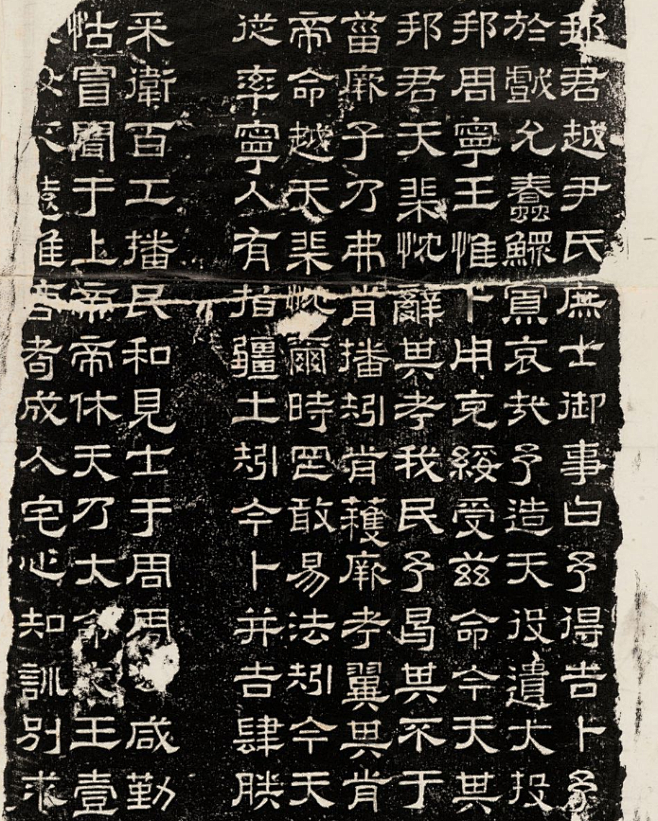 邦君越尹氏庶士御事曰予得吉卜予
於戲允蠢鰥寡哀哉予造天役遺大投
邦周寧王惟卜用克綏受茲命今天其
邦君天棐忱辭其考我民予曷其不于
菑厥子乃弗肯播矧肯穫厥考翼其肯
帝命越天棐忱爾時罔敢易法矧今天
從率寧人有指疆土矧今卜并吉肆朕
采衛百工播民和見士于周周咸勤
怙冒聞于上帝帝休天乃大命王壹
丕遠惟商耇成人宅心知訓別求